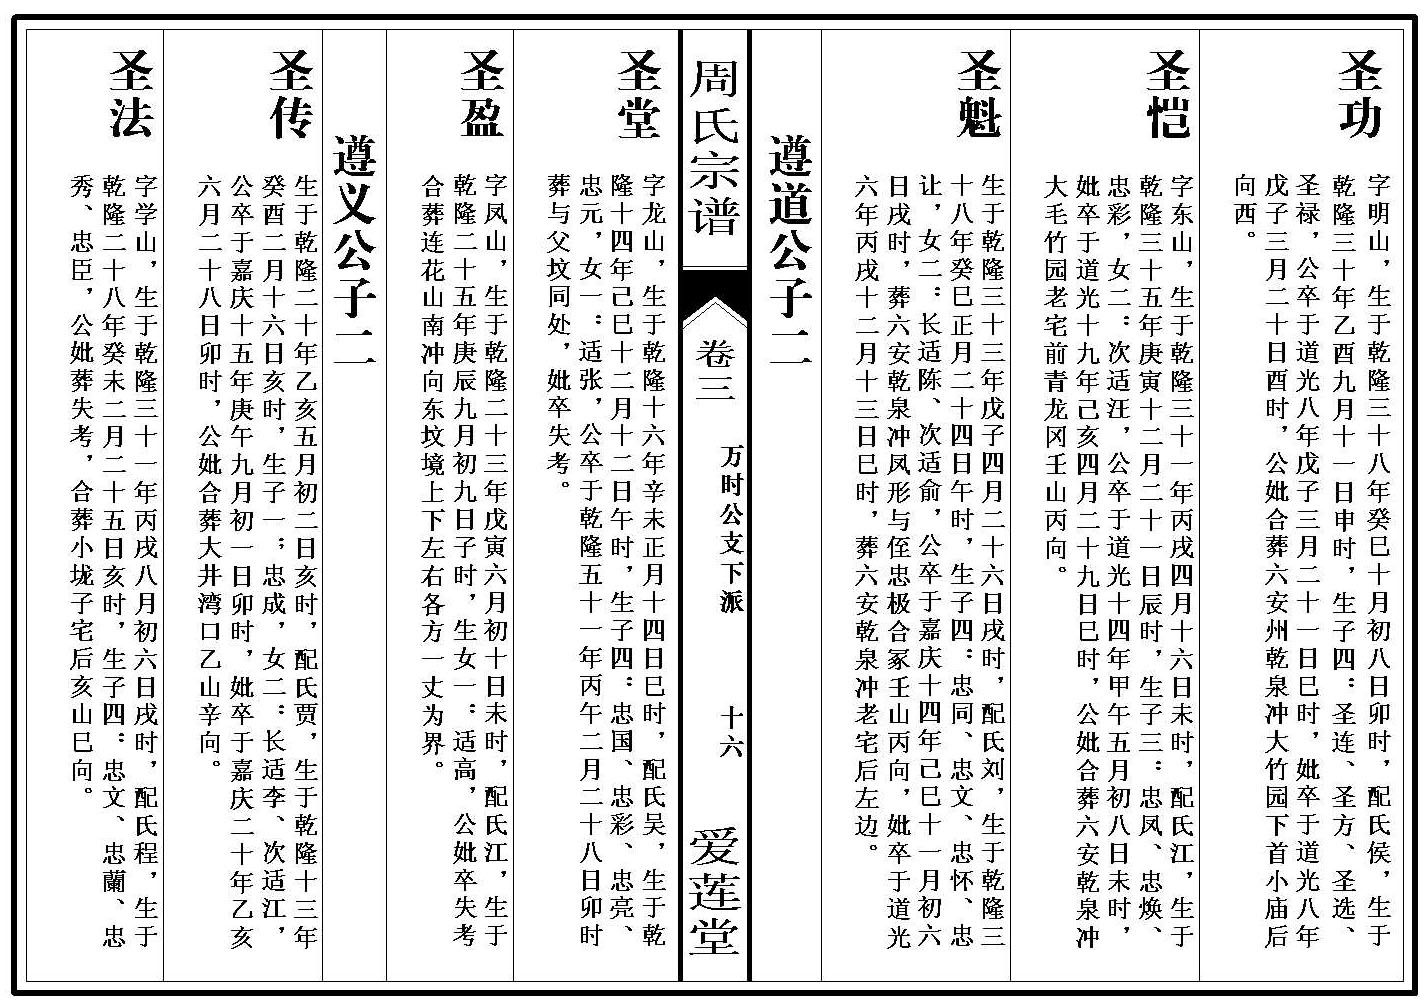 圣功
字明山，生于乾隆三十八年癸巳十月初八日卯时，配氏侯，生于
乾隆三十年乙酉九月十一日申时，生子四：圣连、圣方、圣选、
圣禄，公卒于道光八年戊子三月二十一日巳时，妣卒于道光八年
戊子三月二十日酉时，公妣合葬六安州乾泉冲大竹园下首小庙后
向西。
圣恺
字东山，生于乾隆三十一年丙戌四月十六日未时，配氏江，生于
乾隆三十五年庚寅十二月二十一日辰时，生子三：忠凤、忠焕、
忠彩，女二：次适汪，公卒于道光十四年甲午五月初八日未时，
妣卒于道光十九年己亥四月二十九日巳时，公妣合葬六安乾泉冲
大毛竹园老宅前青龙冈壬山丙向。
圣魁
生于乾隆三十三年戊子四月二十六日戌时，配氏刘，生于乾隆三
十八年癸巳正月二十四日午时，生子四：忠同、忠文、忠怀、忠
让，女二：长适陈、次适俞，公卒于嘉庆十四年己巳十一月初六
日戌时，葬六安乾泉冲凤形与侄忠极合冢壬山丙向，妣卒于道光
六年丙戌十二月十三日巳时，葬六安乾泉冲老宅后左边。
遵道公子二
周氏宗谱
卷三
万时公支下派
十六
爱莲堂
圣堂
字龙山，生于乾隆十六年辛未正月十四日巳时，配氏吴，生于乾
隆十四年己巳十二月十二日午时，生子四：忠国、忠彩、忠亮、
忠元，女一：适张，公卒于乾隆五十一年丙午二月二十八日卯时
葬与父坟同处，妣卒失考。
圣盈
字凤山，生于乾隆二十三年戊寅六月初十日未时，配氏江，生于
乾隆二十五年庚辰九月初九日子时，生女一：适高，公妣卒失考
合葬连花山南冲向东坟境上下左右各方一丈为界。
遵义公子二
圣传
生于乾隆二十年乙亥五月初二日亥时，配氏贾，生于乾隆十三年
癸酉二月十六日亥时，生子一；忠成，女二：长适李、次适江，
公卒于嘉庆十五年庚午九月初一日卯时，妣卒于嘉庆二十年乙亥
六月二十八日卯时，公妣合葬大井湾口乙山辛向。
圣法
字学山，生于乾隆三十一年丙戌八月初六日戌时，配氏程，生于
乾隆二十八年癸未二月二十五日亥时，生子四：忠文、忠蘭、忠
秀、忠臣，公妣葬失考，合葬小垅子宅后亥山巳向。